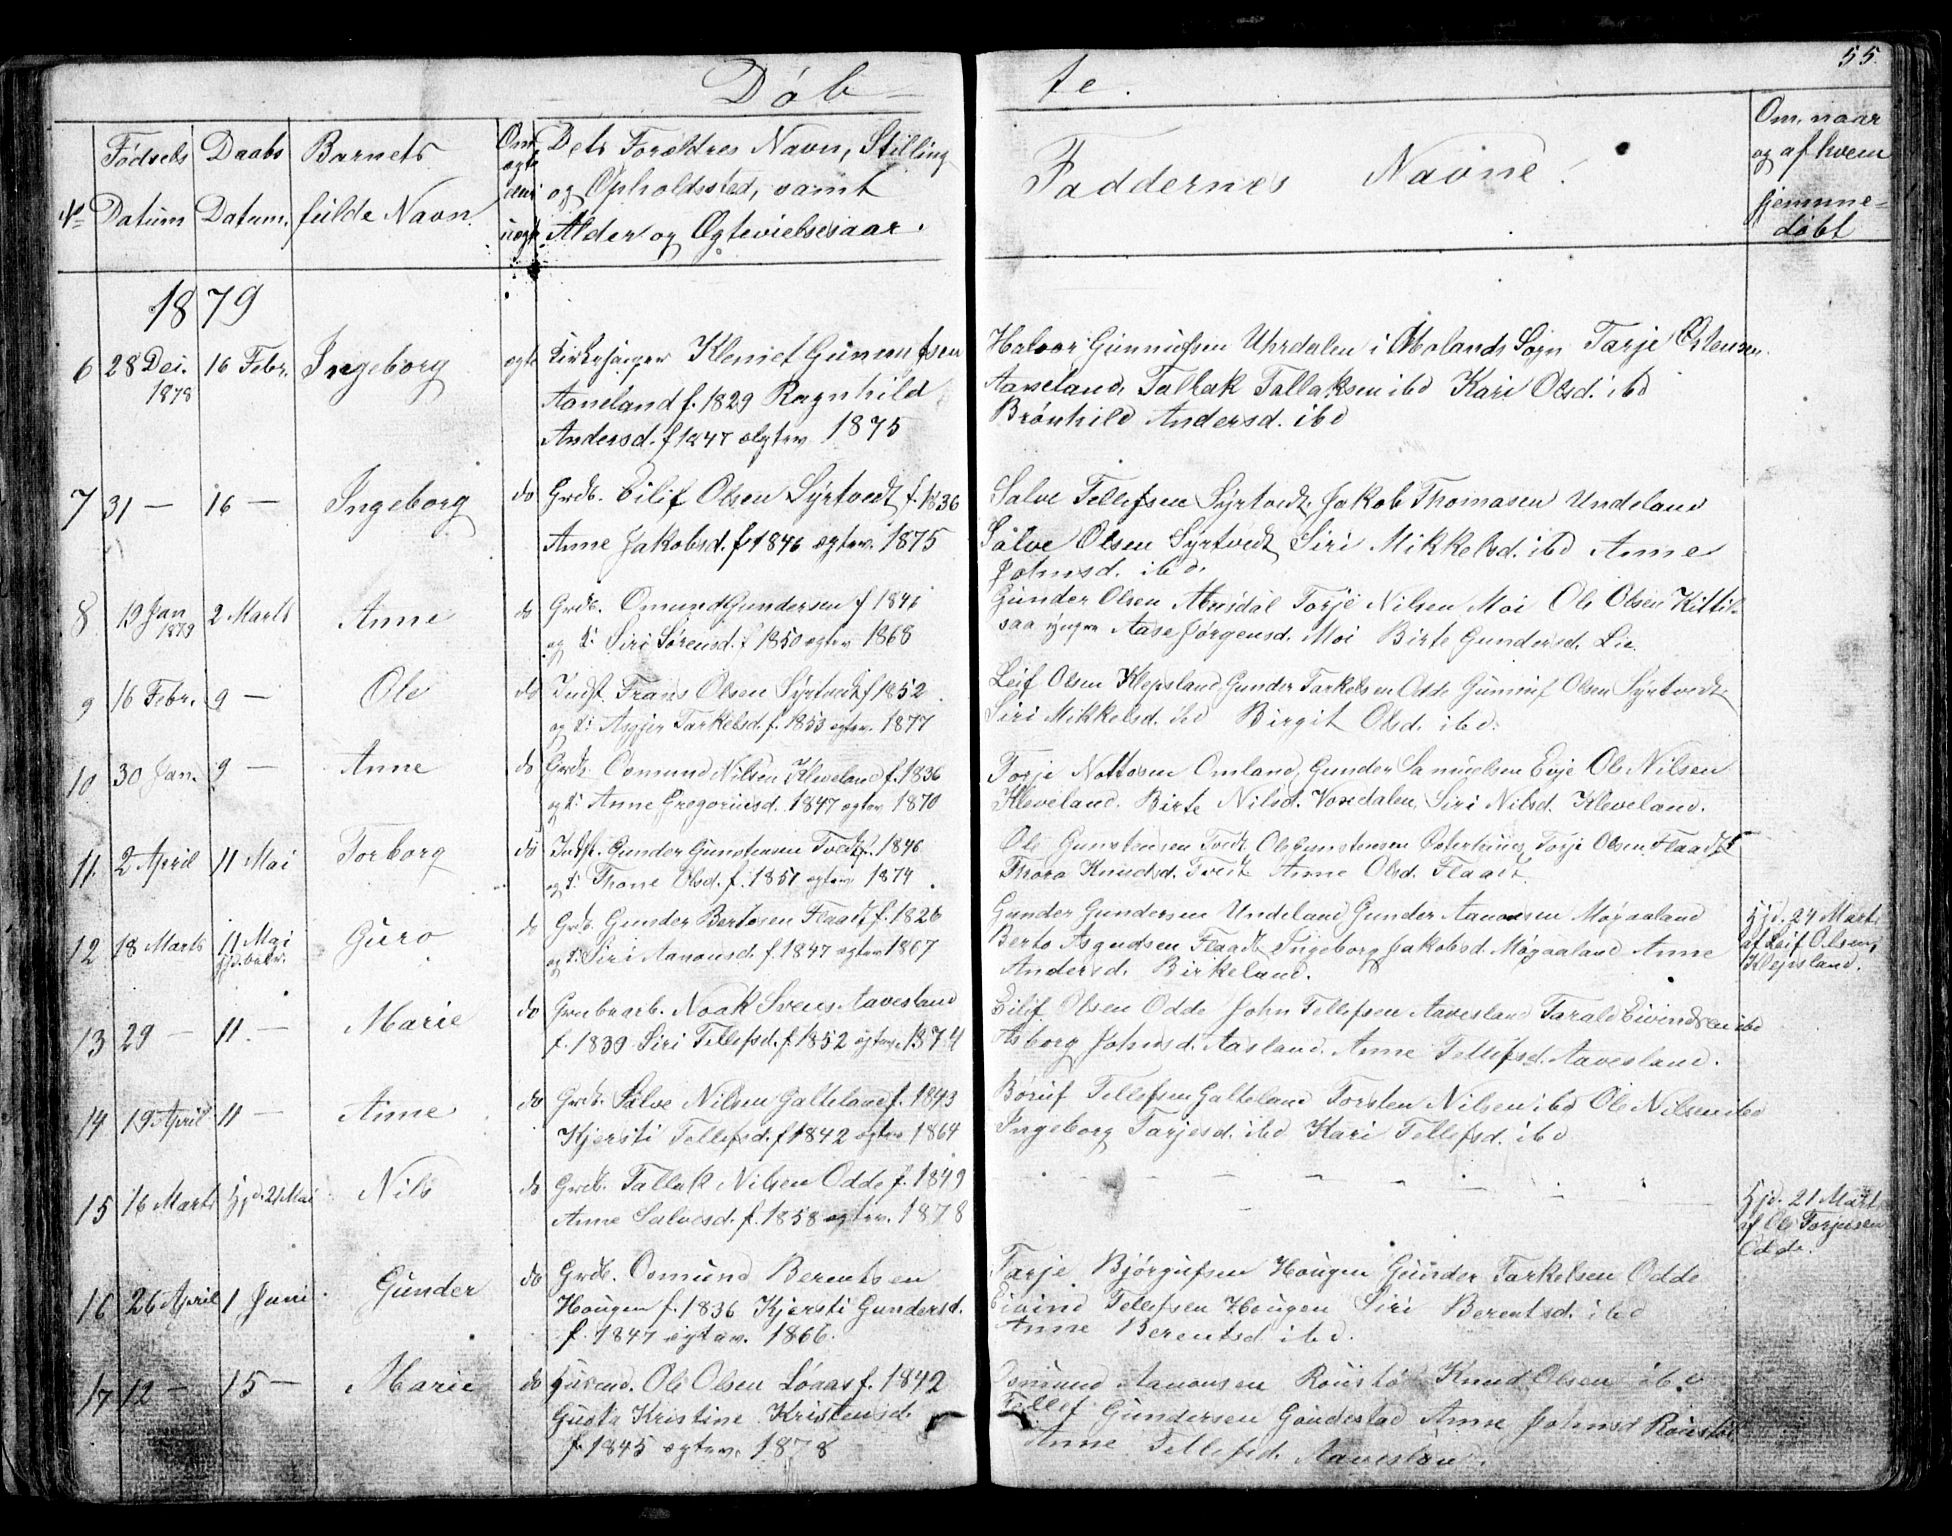 55.
Døb-
te.
No
Fødsels Datum
Daabs Datum.
Barnets fulde Navn.
Om ægte eller uægte
Dets Forældres Navn, Stilling
og Opholdssted, samt
Alder og Ægtevielsesaar.
Faddernes Navne.
Om, naar
og af hvem
hjemme-
døbt
1879
6 28 Dec. 1878 16 Febr. Ingeborg ægte Kirkesanger Gunnufsen
Aaneland f. 1829 Ragnhild
Andersd. f 1847 ægtev. 1875
Halvor Gunnufsen Uhrdalen i Molands Sogn Tarje Østensen
Aaneland, Tallak Tallaksen ibd Kari Olsd. ibd
Brønhild Andersd. ibd
7 31 — 16 — Ingeborg do Grdb. Eilif Olsen Syrtvedt f. 1836
Anne Jakobsd. f 1846 ægtev. 1875
Salve Tellefsen Syrtvedt, Jakob Thomasen Undeland
Salve Olsen Syrtvedt Siri Mikkelsd. ibd Anne
Johnsd. ibd.
8 19 Jan 1879 2 Marts Anne do Grdb. Omund Gundersen f 1841
og H: Siri Sørensd. f 1850 ægtev 1868
Gunder Olsen Torje Nilsen Moi Ole Olsen Kittil-
saa yngre Aase Jørgensd. Moi Birte Gundersd. Lie
9 16 Febr. 9 — Ole do Indst. Frans Olsen Syrtvedt f 1852
og H: Asgjer Tarkelsd. f. 1853 ægtev. 1877
Leif Olsen Klepsland, Gunder Tarkelsen Odde Gunnuf Olsen Syrtvedt
Siri Mikkelsd. ibd Birgit Olsd. ibd.
10 30 Jan. 9 — Anne do Grdb. Osmund Nilsen Kleveland f. 1836
og H: Anne Gregoriusd. 1847 ægtev 1870
Torje Nottosen Omland, Gunder Samuelsen Evje Ole Nilsen
Kleveland. Birte Nilsd. Vosedalen, Siri Nilsd. Kleveland.
11. 2 April 11 Mai Torborg do Indst. Gunder Gunstensen Tvedt f. 1846
og H: Thone Olsd. f. 1857 ægtev 1874
Ole Gunstensen Tvedt Ole Gunstensen Torje Olsen Flaadt
Thora Knudsd. Tvedt Anne Olsd. Flaadt
12 18 Marts 11 Mai Guro do Grdb. Gunder Bertosen Flaadt f. 1826
og H: Siri Aanonsd. f. 1847 ægtev 1867
Gunder Gundersen Undeland Gunder Aanonsen Møgaaland
Berto Asgudsen Flaadt Ingeborg Jakobsd. Møgaaland Anne
Andersd. Birkeland.
Hjd. 24 Marts
af Leif Olsen,
Klepsland.
13 29 — 11. — Marie do Grubearb. Noak Svens. Aavesland
f. 1839 Siri Tellefsd. f. 1852 ægtev. 1874
Eilif Olsen Odde John Tellefsen Aavesland Tarald Eivindsen ibd
Asborg Johnsd. Aasland. Anne Tellefsd. Aavesland.
14 19 April 11 — Anne do Grdb. Salve Nilsen Galteland f. 1843
Kjersti Tellefsd. f 1842 ægtev 1864
Børuf Tellefsen Galteland Torsten Nilsen ibd Ole Nilsen ibd
Ingeborg Tarjesd. ibd Kari Tellefsd. ibd
15 16 Marts Hjd. 21 Mai Nils do Grdb. Tallak Nilsen Odde f. 1849
Anne Salvesd. f. 1858 ægtev. 1878
Hjd. 21 Marts
af Ole Torjusen
Odde.
16 26 April 1 Juni. Gunder do Grdb. Osmund Berentsen
Hougen f. 1836 Kjersti Gundersd.
f. 1847 ægtev. 1866.
Tarje Bjørgufsen Hougen Gunder Tarkelsen Odde
Eivind Tellefsen Hougen Siri Berentsd. ibd
Anne Berentsd. ibd.
17 12 — 15 — Marie do Husend. Ole Olsen Løaas f. 1842
Gusta Kristine Kristensd.
f. 1845 ægtev. 1878
Osmund Aanonsen Roustøl Knud Olsen ibd
Tellef Gundersen Gaudestad Anne Johnsd Roustøl
Anne Tellefsd. Aavesland.